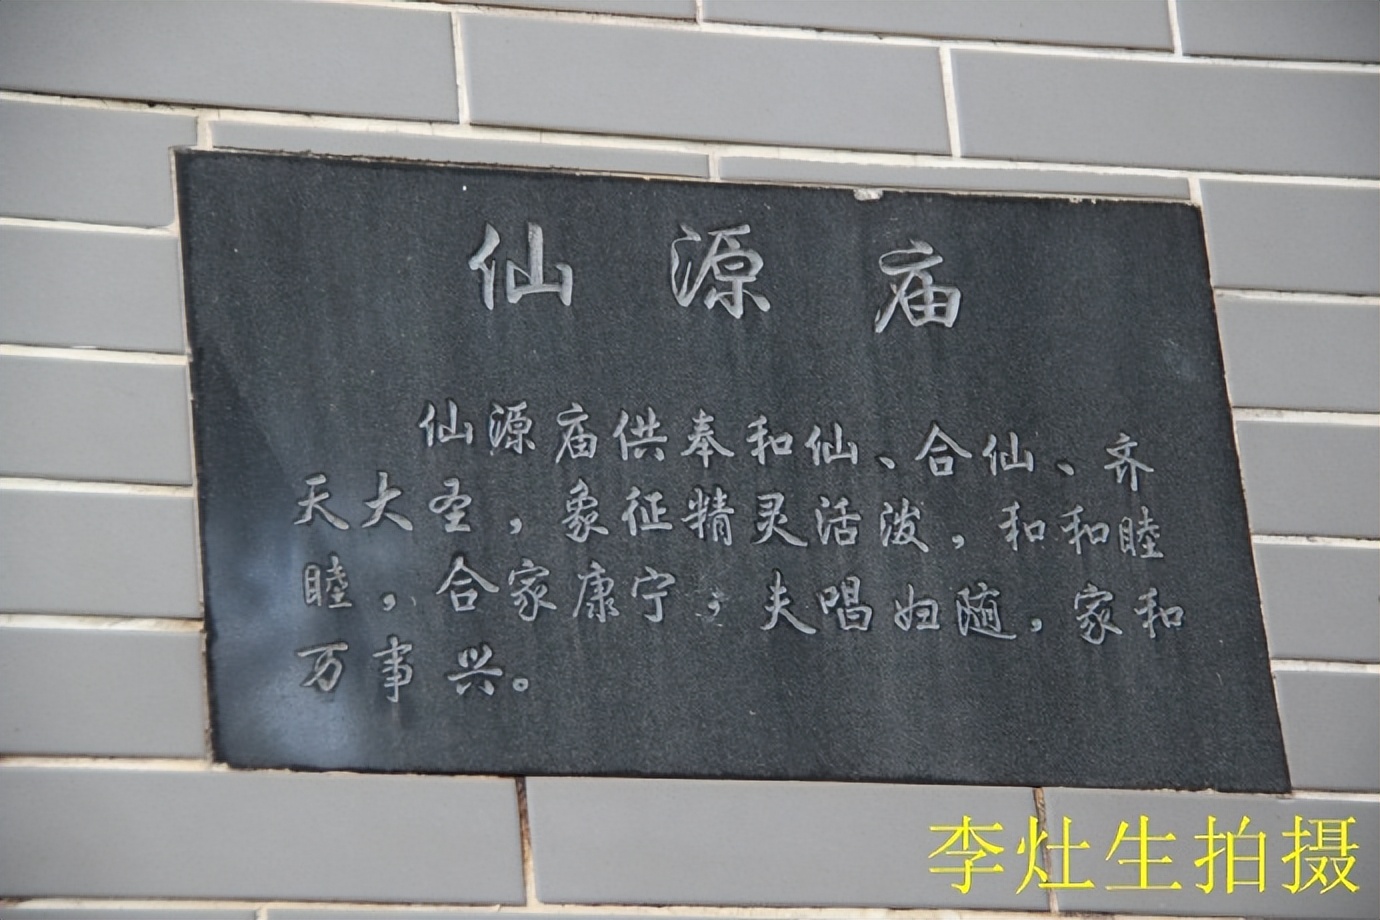 仙源庙
仙源庙供奉和仙、合仙、齐
天大圣，象征精灵活泼，和和睦
睦，合家康宁，夫唱妇随，家和
万事兴。
李灶生拍摄